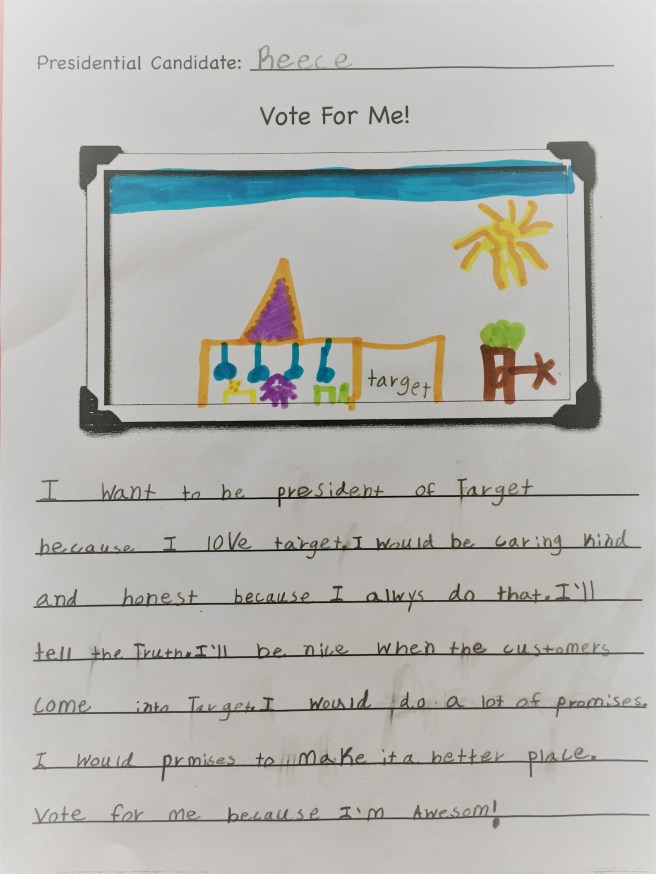 Presidential Candidate: Reece
Vote For Me!
target
I want to be president of Target
because I love target. I would be caring kind
and honest because I alwys do that. I'll
tell the Truth. I'll be nice when the customers
come into Target. I would do a lot of promises.
I would prmises to make it a better place.
Vote for me because I'm Awesom!